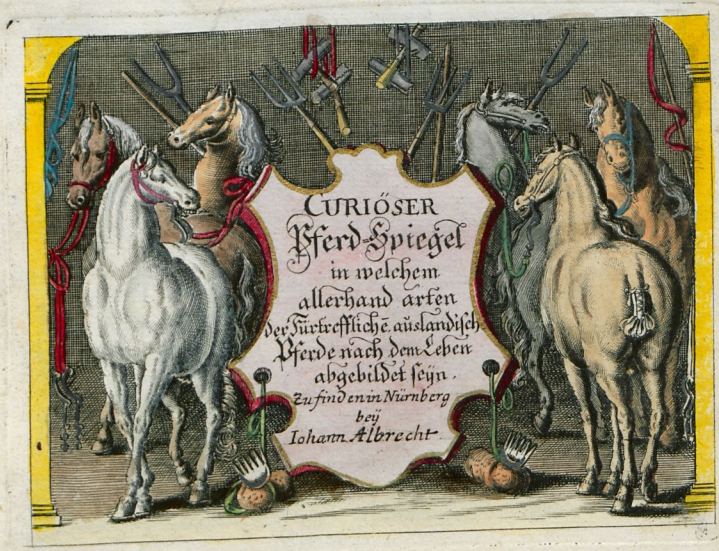 CURIÖSER
Pferd-Spiegel
in welchem
allerhand arten
der Fürtrefflichē ausländisch
Pferde nach dem Leben
abgebildet seÿn.
Zu finden in Nürnberg
beÿ
Iohann Albrecht.